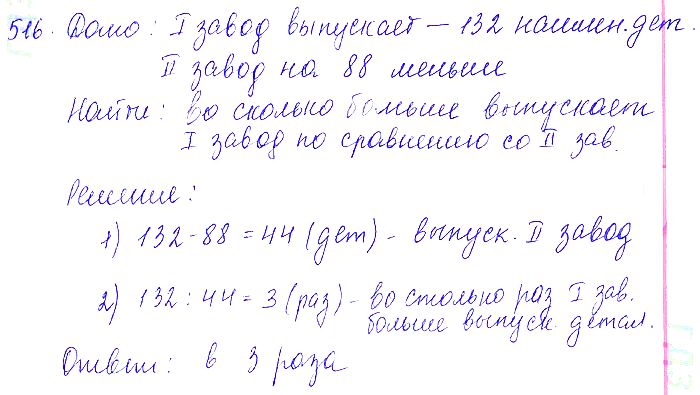 516. Дано: I завод выпускает – 132 наимен. дет.
II завод на 88 меньше
Найти: во сколько больше выпускает
I завод по сравнению со II зав.
Решение:
1) 132 - 88 = 44 (дет) - выпуск. II завод
2) 132 : 44 = 3 (раз) - во столько раз I зав.
больше выпуск. детал.
Ответ: в 3 раза